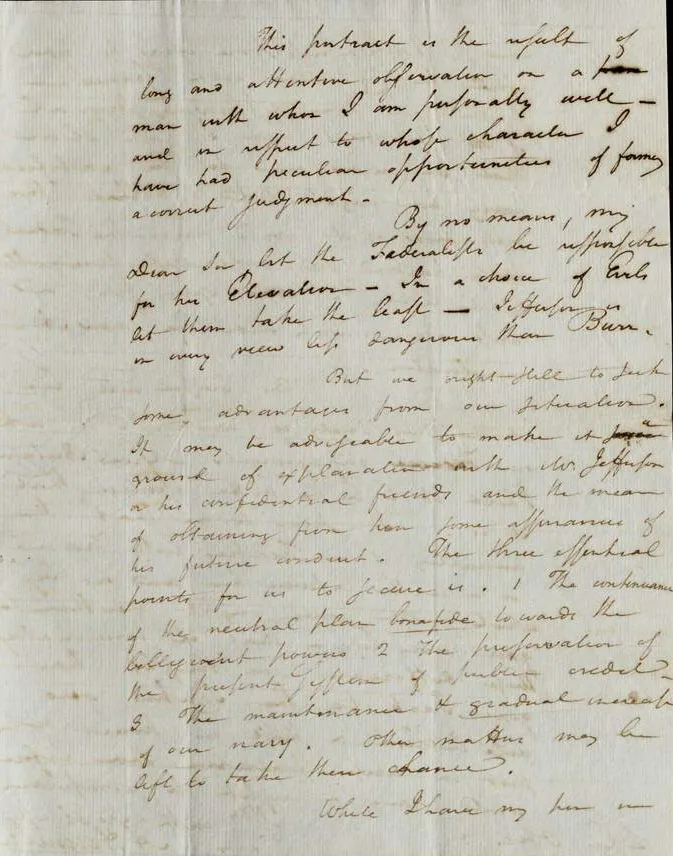 This portract is the result of
long and attentive observation on a
man with whom I am personally well —
and in respect to whose character I
have had peculiar opportunities of forming
a correct judgment.
By no means, my
Dear Sir let the Fœderalists be responsible
for his Elevation — In a choice of Evils
let them take the least — Jefferson is
in every view less dangerous than Burr.
But we ought still to seek
some advantages from our situation.
It may be adviseable to make it a
ground of explanation with Mr Jefferson
or his confidential friends and the means
of obtaining from him some assurances of
his future conduct. The three essential
points for us to secure is. 1 The continuance
of the neutral plan bonafide towards the
belligerent powers 2 The preservation of
the present System of public credit —
3 The maintenance & gradual increase
of our navy. Other matters may be
left to take their chance.
While I have my pen in